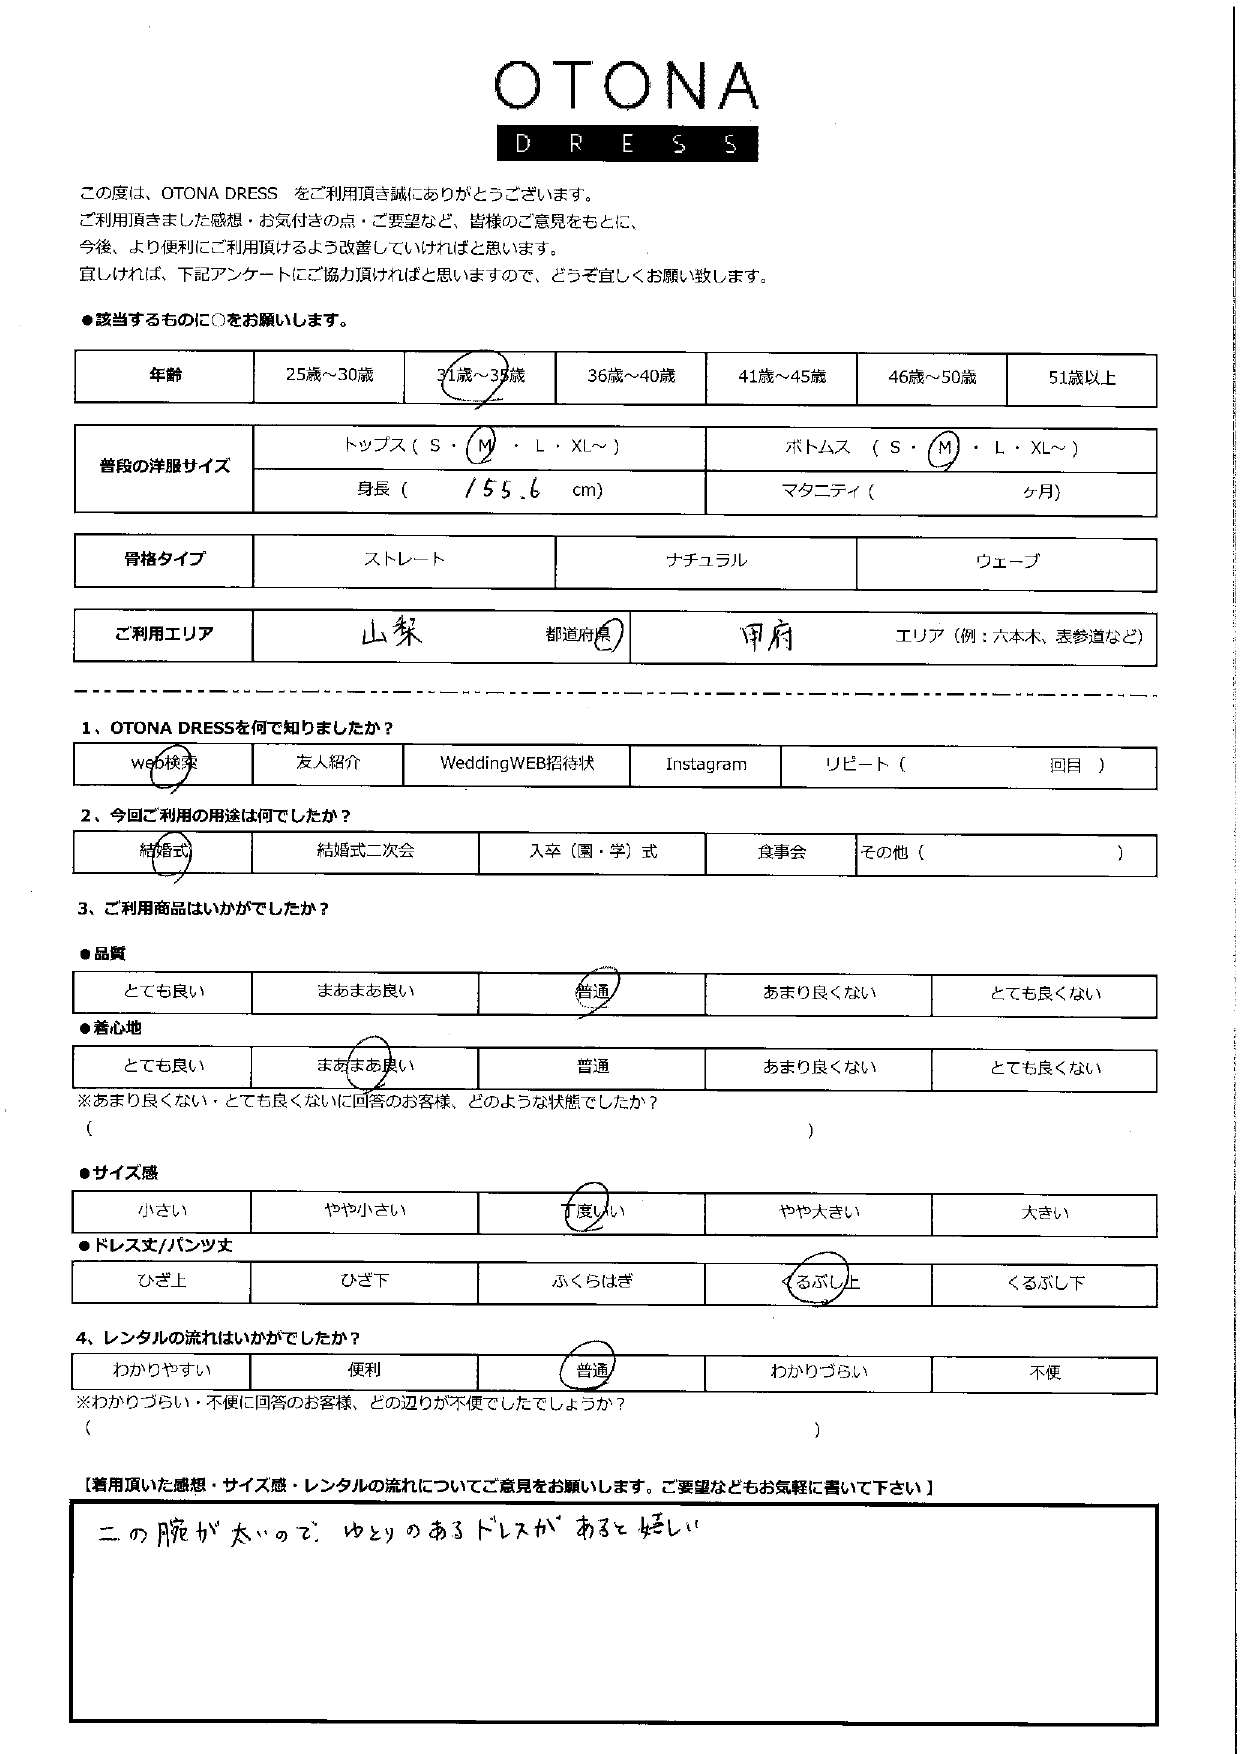 OTONA
DRESS
この度は、OTONA DRESS をご利用頂き誠にありがとうございます。
ご利用頂きました感想・お気付きの点・ご要望など、皆様のご意見をもとに、
今後、より便利にご利用頂けるよう改善していければと思います。
宜しければ、下記アンケートにご協力頂ければと思いますので、どうぞ宜しくお願い致します。
●該当するものに○をお願いします。
年齢 25歳～30歳 31歳～35歳 36歳～40歳 41歳～45歳 46歳～50歳 51歳以上
普段の洋服サイズ トップス ( S ・ M ・ L ・ XL～ ) ボトムス ( S ・ M ・ L ・ XL～ )
身長 ( 155.6 cm) マタニティ ( ヶ月)
骨格タイプ ストレート ナチュラル ウェーブ
ご利用エリア 山梨 都道府県 甲府 エリア（例：六本木、表参道など）
1、OTONA DRESSを何で知りましたか？
web検索 友人紹介 WeddingWEB招待状 Instagram リピート ( 回目 )
2、今回ご利用の用途は何でしたか？
結婚式 結婚式二次会 入卒（園・学）式 食事会 その他 ( )
3、ご利用商品はいかがでしたか？
●品質
とても良い まあまあ良い 普通 あまり良くない とても良くない
●着心地
とても良い まあまあ良い 普通 あまり良くない とても良くない
※あまり良くない・とても良くないに回答のお客様、どのような状態でしたか？
( )
●サイズ感
小さい やや小さい 丁度いい やや大きい 大きい
●ドレス丈/パンツ丈
ひざ上 ひざ下 ふくらはぎ くるぶし上 くるぶし下
4、レンタルの流れはいかがでしたか？
わかりやすい 便利 普通 わかりづらい 不便
※わかりづらい・不便に回答のお客様、どの辺りが不便でしたでしょうか？
( )
【着用頂いた感想・サイズ感・レンタルの流れについてご意見をお願いします。ご要望などもお気軽に書いて下さい】
二の腕が太いので、ゆとりのあるドレスがあると嬉しい